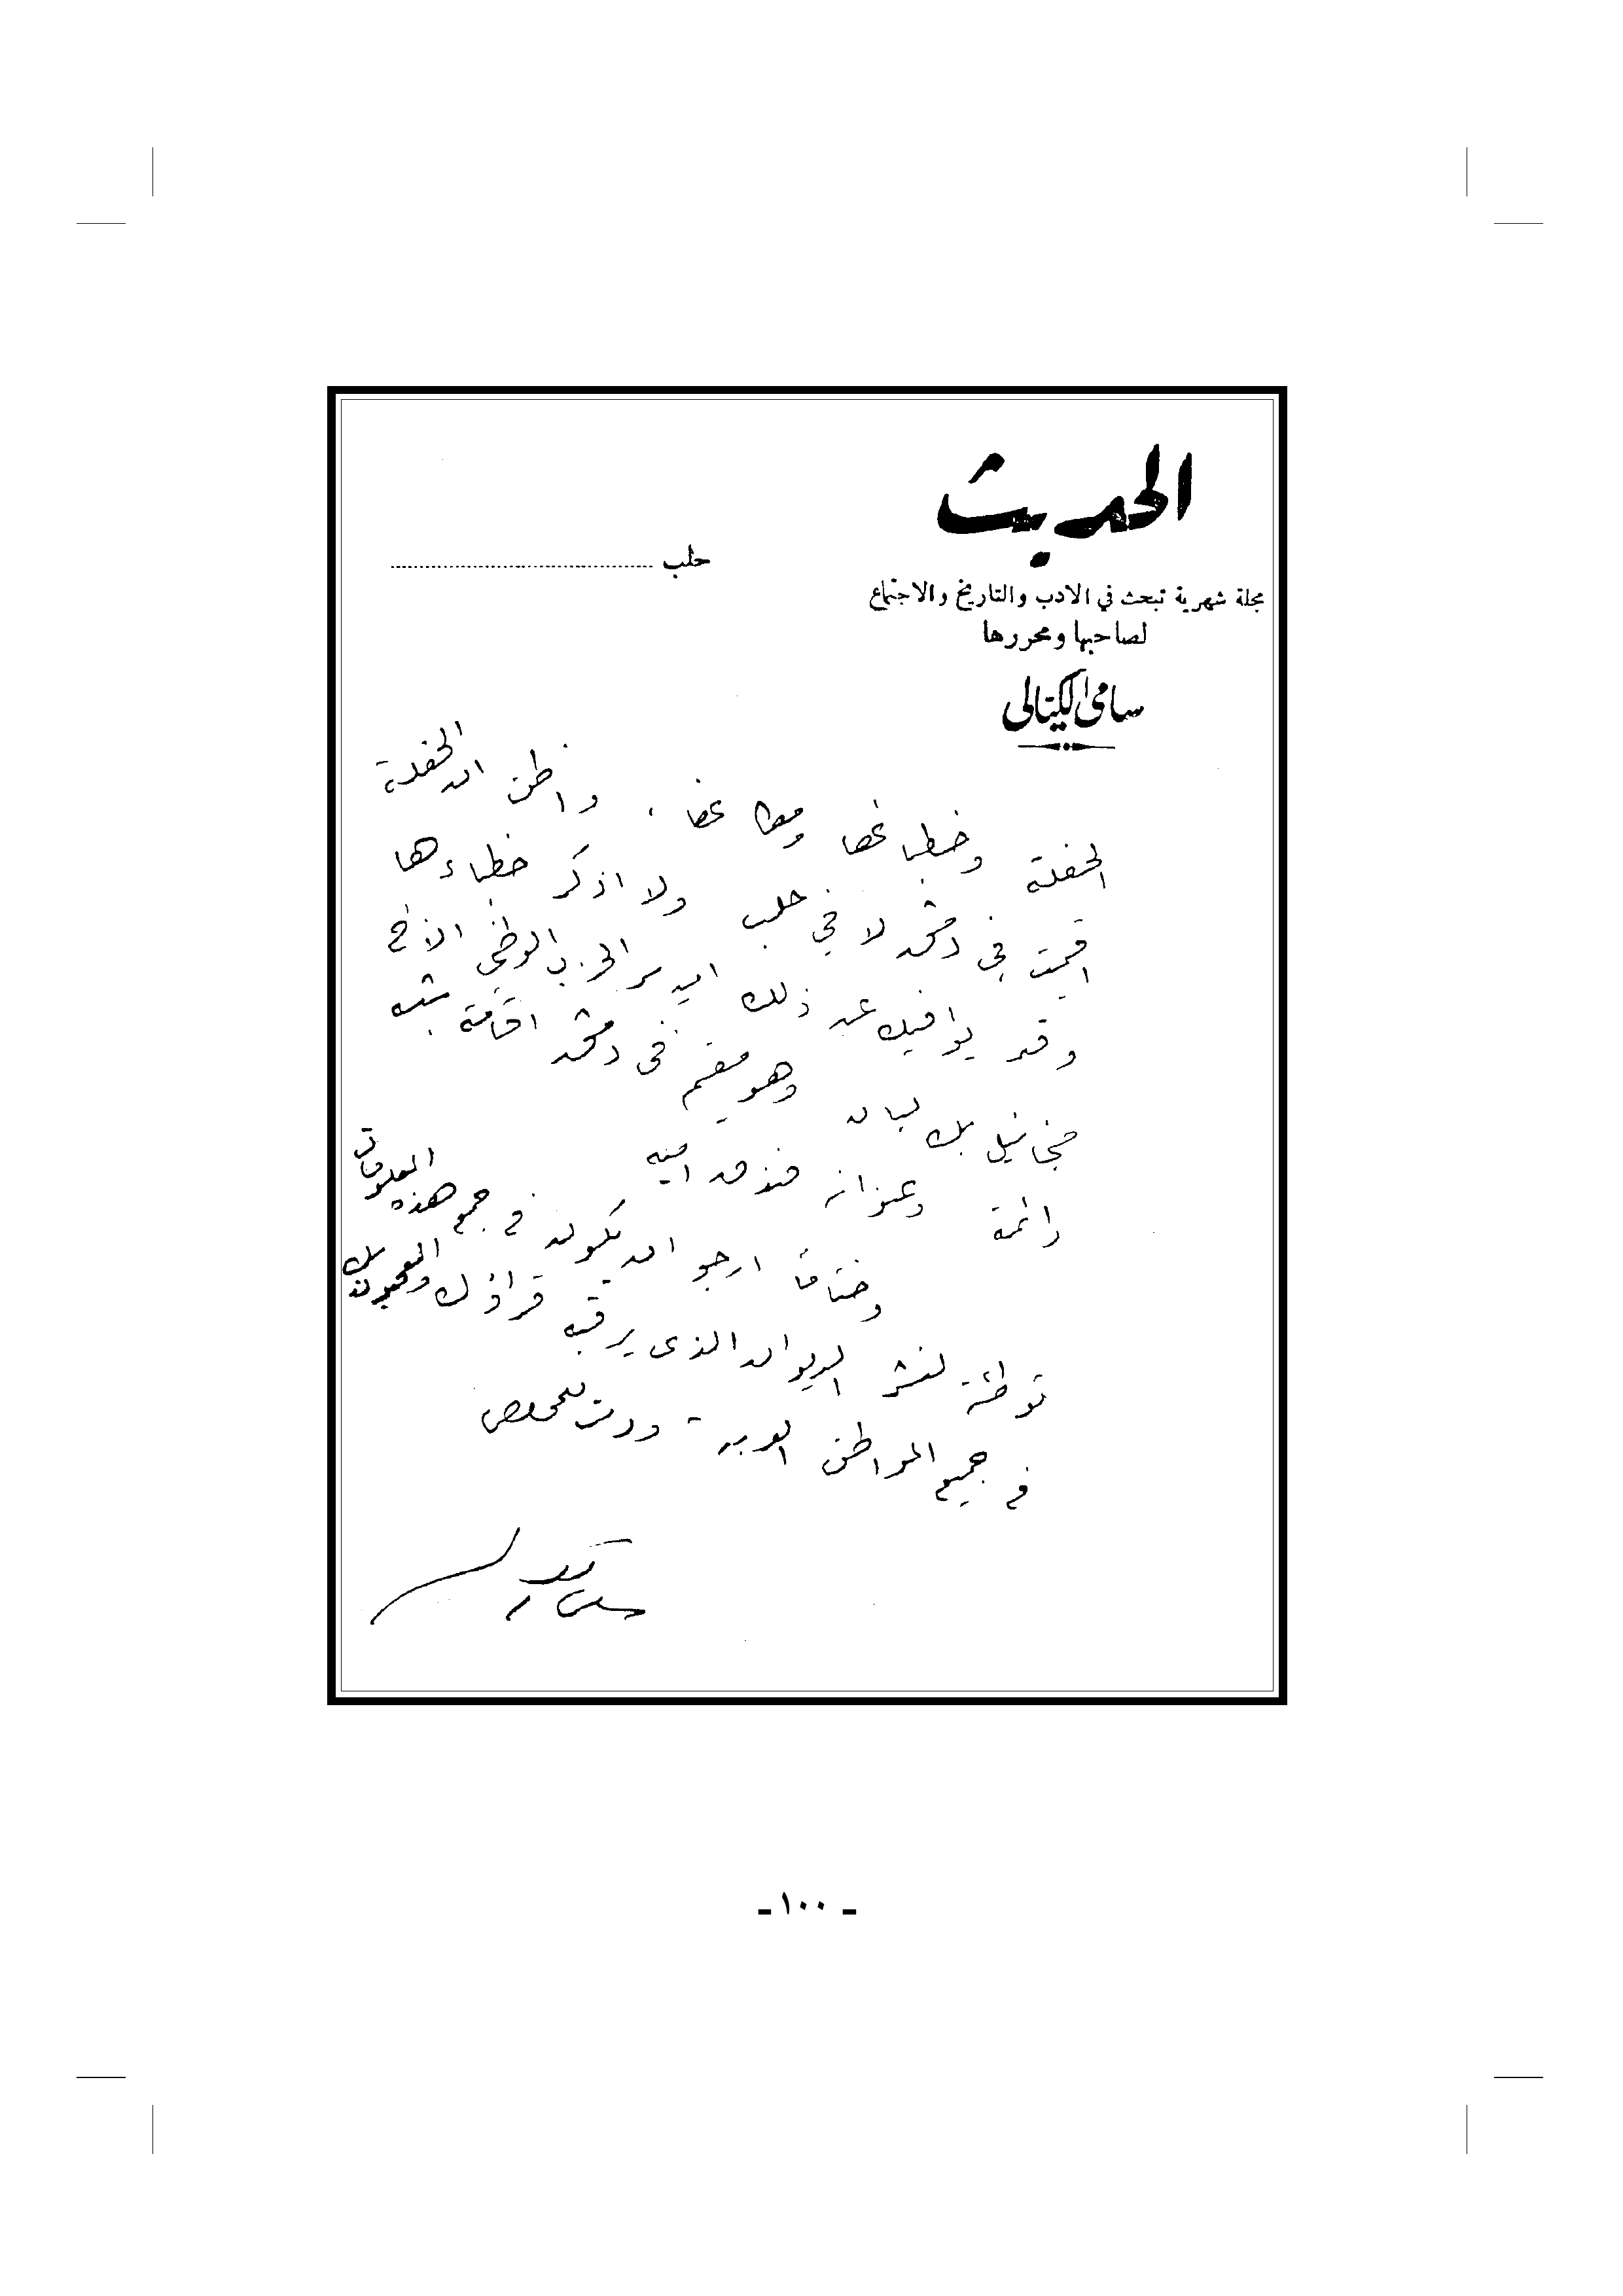 الحديث
حلب
مجلة شهرية تبحث في الادب والتاريخ والاجتماع
لصاحبها ومحررها
سامي الكيالي
الحفلة وخطباءها ومكانها . واظن ان الحفلة
اقيمت في دمشق لا في حلب ولا اذكر خطباءها
وقد يوافيك عن ذلك امين سر الحزب الوطني الاخ
ميخائيل بك ليان وهو مقيم في دمشق اقامة شبه
دائمة وعنوانه فندق امية
وختاماً ارجو ان يكون في جمع هذه المعلومات
توطئة لنشر الديوان الذي يرقبه قراؤك
في جميع المواطن العربية ودمت للمخلص
- ١٠٠ -